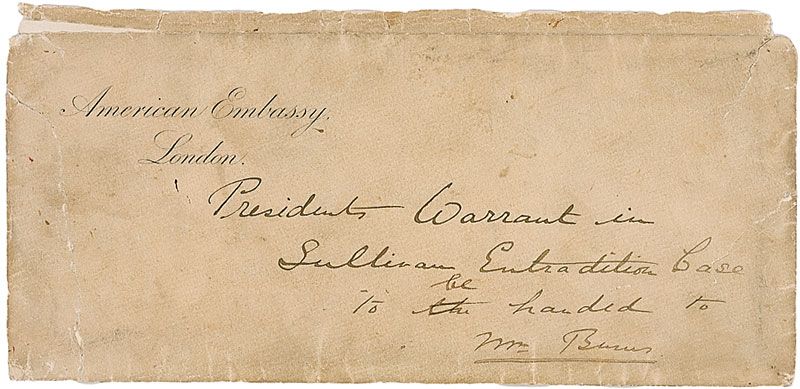 American Embassy,
London.
Presidents Warrant in
Sullivan Extradition Case
be
to the handed to
Wm Burns